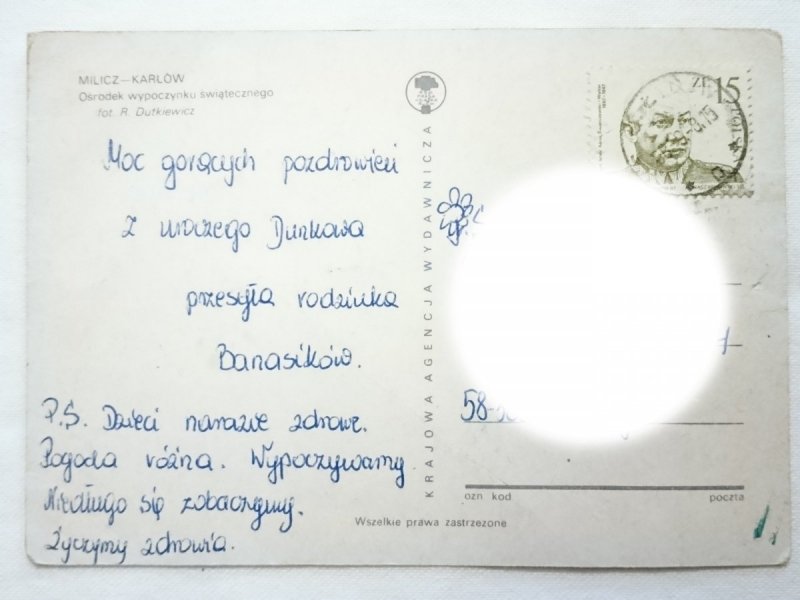 MILICZ—KARŁÓW
Ośrodek wypoczynku świątecznego
fot. R. Dutkiewicz
Moc gorących pozdrowień
z uroczego Dunkowa
przesyła rodzinka
Banasików.
P.S. Dzieci narazie zdrowe.
Pogoda różna. Wypoczywamy.
Niedługo się zobaczymy.
Życzymy zdrowia.
KRAJOWA AGENCJA WYDAWNICZA
ZŁ 15
58-
ozn kod
poczta
Wszelkie prawa zastrzeżone